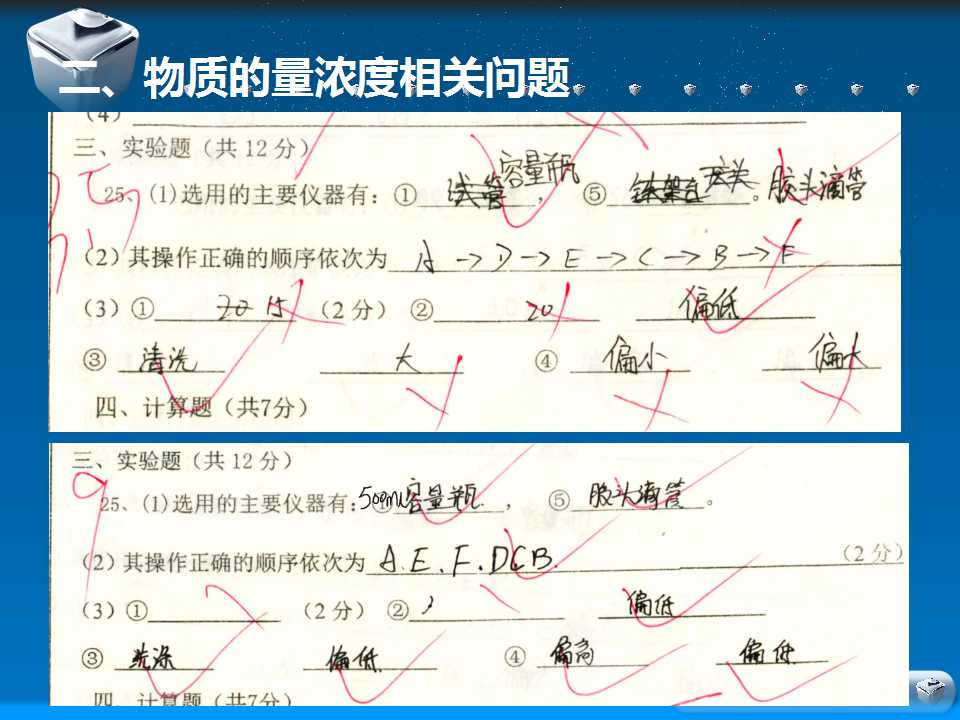 二、物质的量浓度相关问题
(4)
三、实验题（共 12 分）
25、(1)选用的主要仪器有：① 试管 容量瓶 ， ⑤ 。胶头滴管
(2) 其操作正确的顺序依次为 A→D→E→C→B→F
(3) ① 20 15 （2 分） ② 20 偏低
③ 清洗 大 ④ 偏小 偏大
四、计算题（共7分）
三、实验题（共 12 分）
9
25、(1)选用的主要仪器有：① 500ml容量瓶 ， ⑤ 胶头滴管 。
(2) 其操作正确的顺序依次为 A.E.F.DCB. （2 分）
(3) ① （2 分） ② 偏低
③ 洗涤 偏低 ④ 偏高 偏低
四、计算题（共7分）